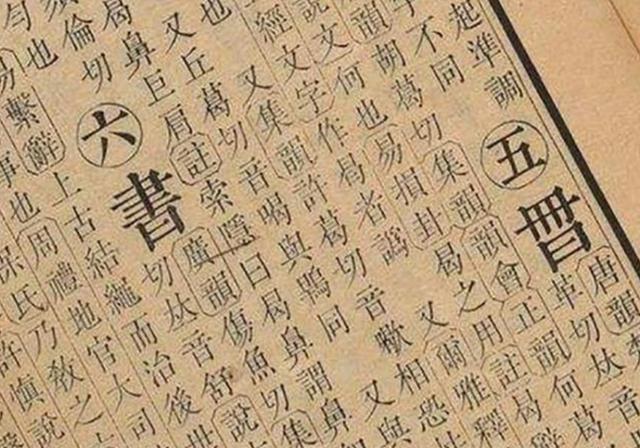 唐韻
起準調五㬱革切𠀤音
不同胡葛切集韻韻會正韻何葛
韻
說文何也易損卦曷之用註曷
經文字作曷者譌又爾雅釋
又集韻許葛切音歇相恐
也又丘葛切音喝與鶡同又與
曷鼻巨肩註索隱曰曷鼻謂鼻
倫切六書廣韻傷魚切集
切𠀤音舒說
勻也
易繫辭上古結繩而治後世
事也周禮地官大司
保氏乃敎之
許慎說